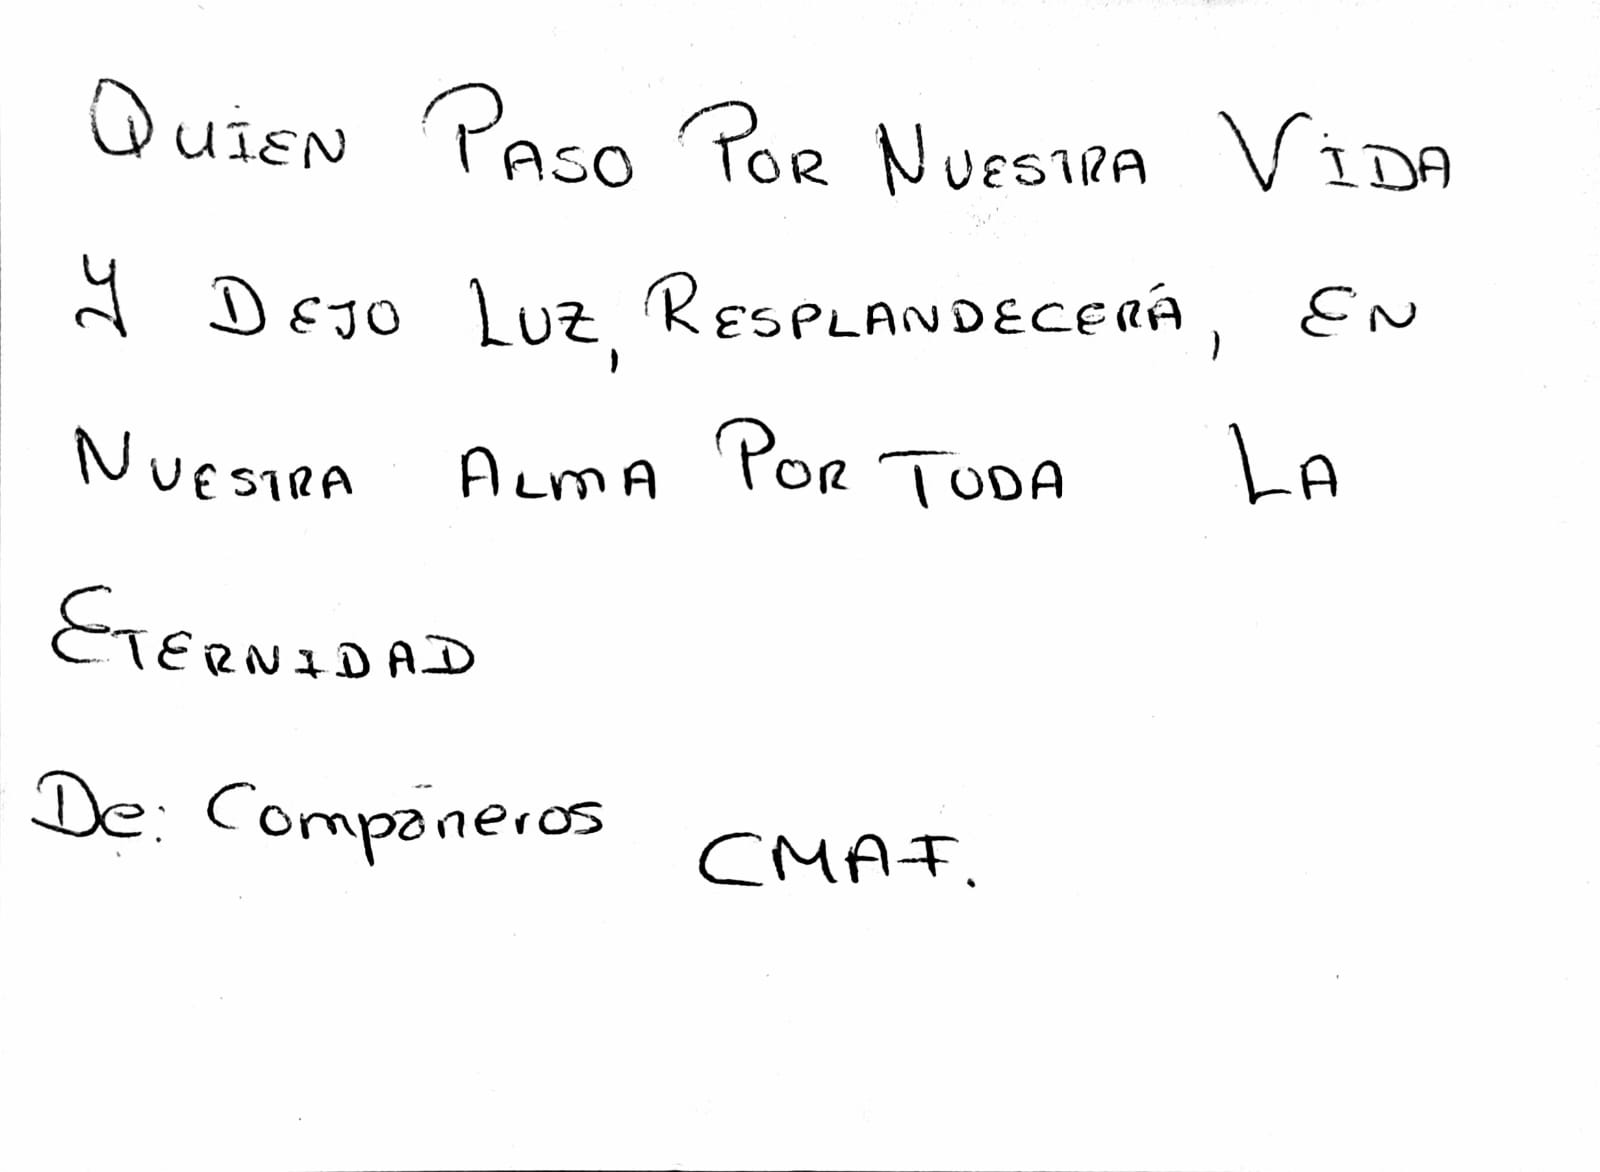 QUIEN PASO POR NUESTRA VIDA
Y DEJO LUZ, RESPLANDECERÁ, EN
NUESTRA ALMA POR TODA LA
ETERNIDAD
De: Compañeros CMAF.